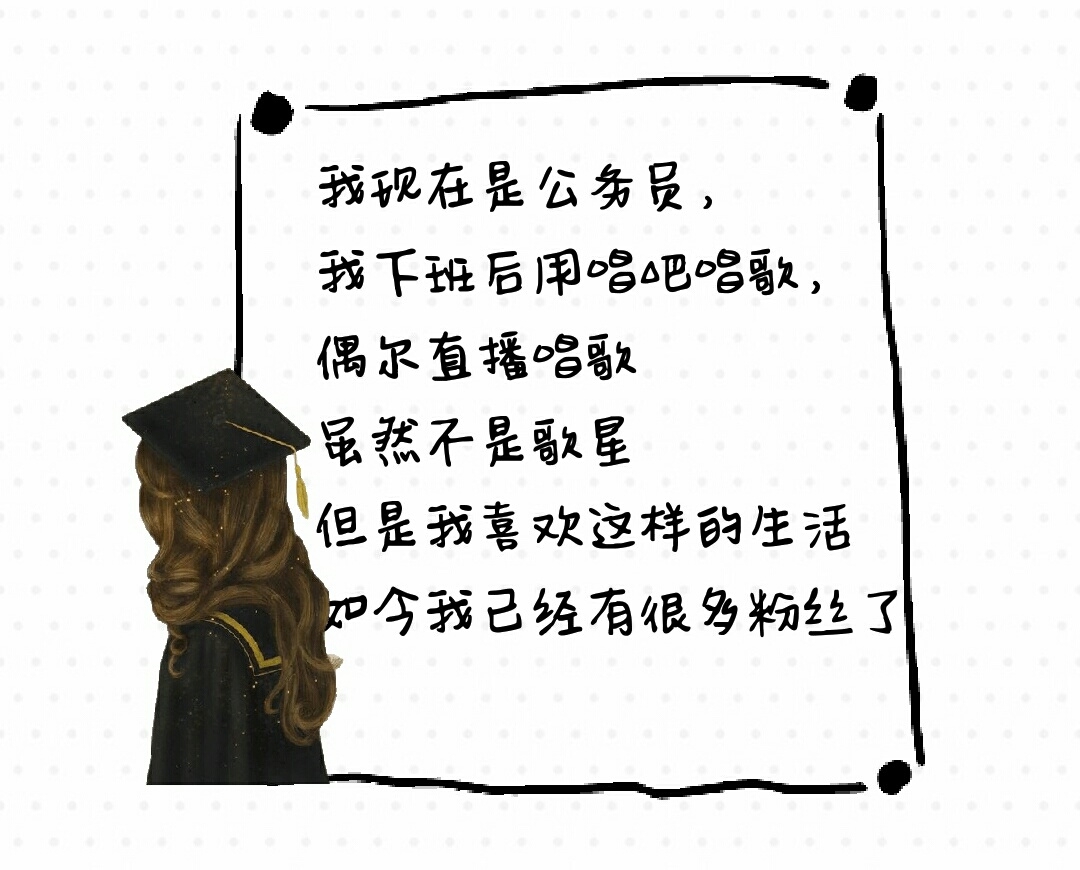 我现在是公务员，
我下班后用唱吧唱歌，
偶尔直播唱歌
虽然不是歌星
但是我喜欢这样的生活
如今我已经有很多粉丝了